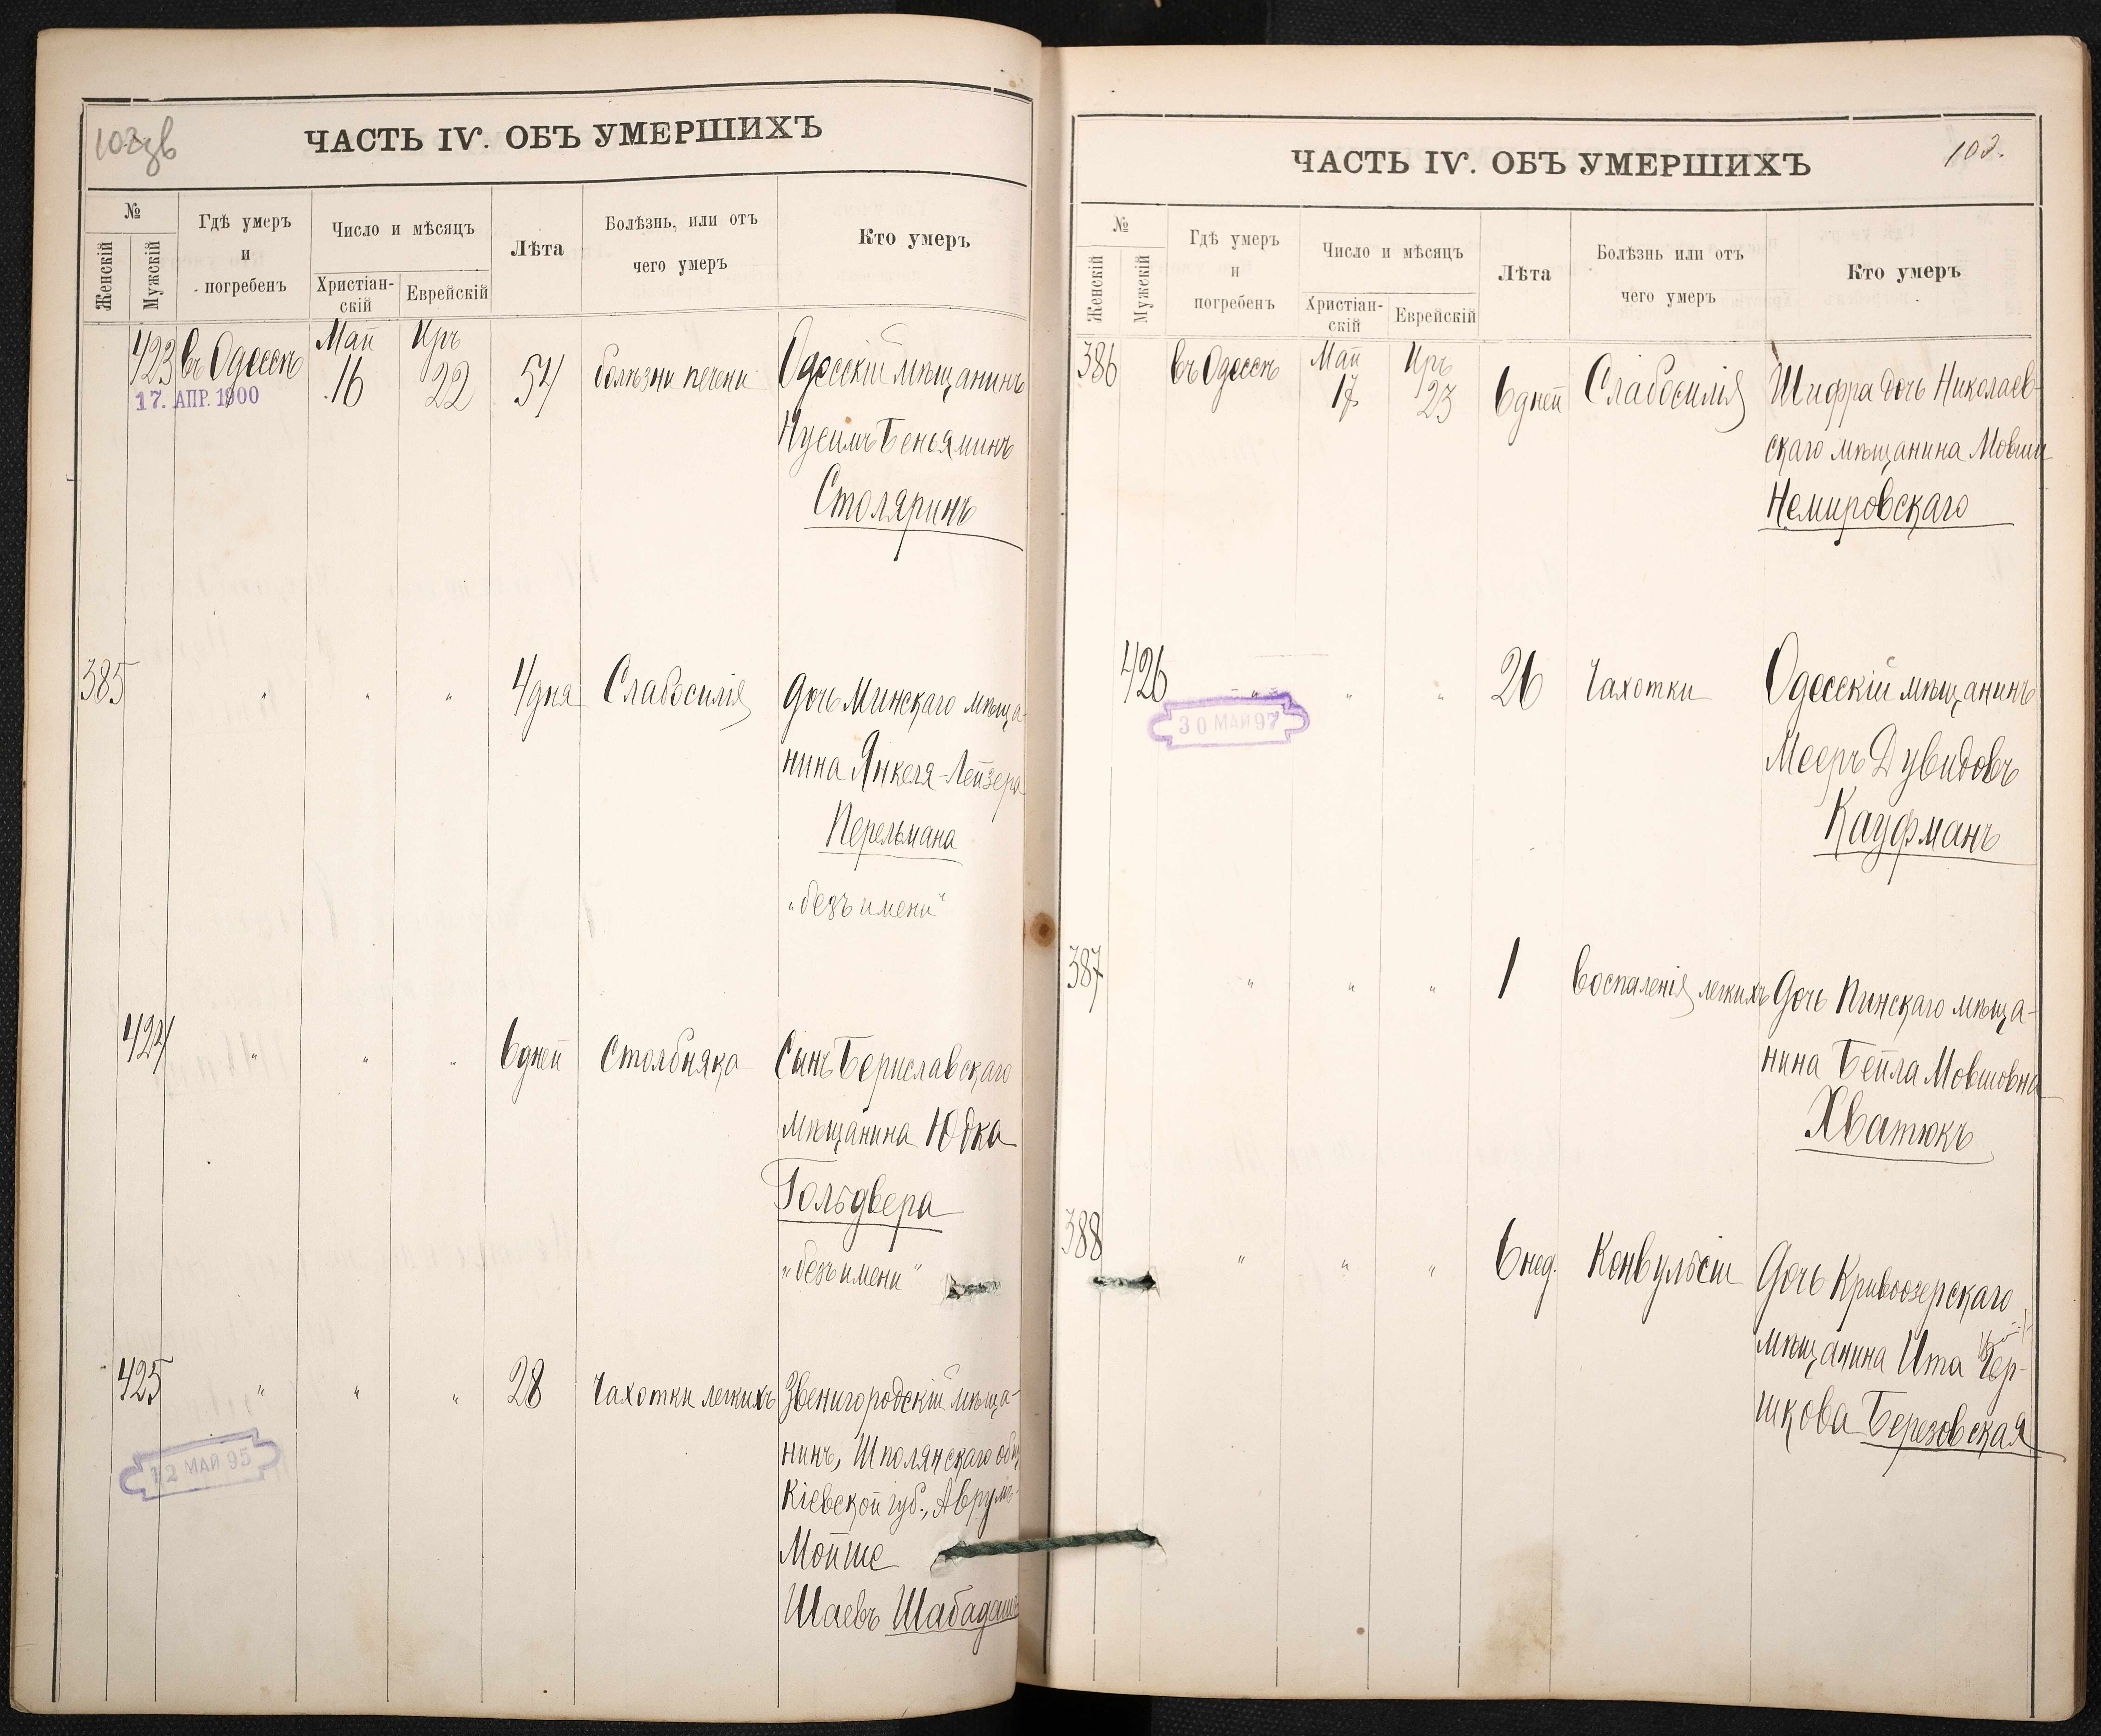 102зв
ЧАСТЬ IV. ОБЪ УМЕРШИХЪ
№
Женскій
Мужскій
Гдѣ умеръ
и
погребенъ
Число и мѣсяцъ
Христіан-
скій
Еврейскій
Лѣта
Болѣзнь, или отъ
чего умеръ
Кто умеръ
423 въ Одессѣ Май 16 Иръ 22 54 болѣзни печени Одесскій мѣщанинъ
17. АПР. 1900
Нусимъ Беньяминъ
Столяринъ
385 " " " 4 дня Слабосилія Дочь Минскаго мѣща-
нина Янкеля-Лейзера
Перельмана
"безъ имени"
424 " " " 6 дней Столбняка Сынъ Бериславскаго
мѣщанина Юдка
Гольдвера
"безъ имени"
425 " " " 28 Чахотки легкихъ Звенигородскій мѣща-
12 МАЙ 95
нинъ, Шполянскаго общ
Кіевской губ., Аврумъ-
Мойше
Шаевъ Шабадашъ
ЧАСТЬ IV. ОБЪ УМЕРШИХЪ
103.
№
Женскій
Мужскій
Гдѣ умеръ
и
погребенъ
Число и мѣсяцъ
Христіан-
скій
Еврейскій
Лѣта
Болѣзнь или отъ
чего умеръ
Кто умеръ
386 въ Одессѣ Май 17 Иръ 23 6 дней Слабосилія Шифра дочь Николаев-
скаго мѣщанина Мовши
Немировскаго
426 " " " 26 Чахотки Одесскій мѣщанинъ
30 МАЙ 97
Мееръ Дувидовъ
Кауфманъ
387 " " " 1 Воспаленія легкихъ Дочь Пинскаго мѣща-
нина Бейла Мовшовна
Хватюкъ
388 " " " 6 нед. Конвульсіи Дочь Кривоозерскаго
мѣщанина Ита Гер-
шкова Березовская